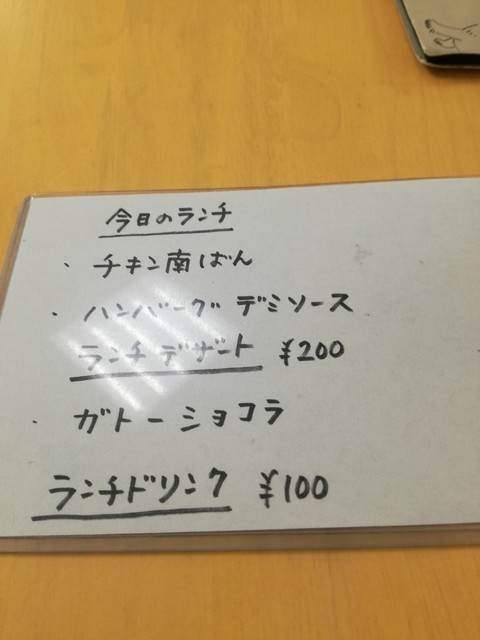 今日のランチ
・チキン南ばん
・ハンバーグ デミソース
ランチデザート ¥200
・ガトーショコラ
ランチドリンク ¥100